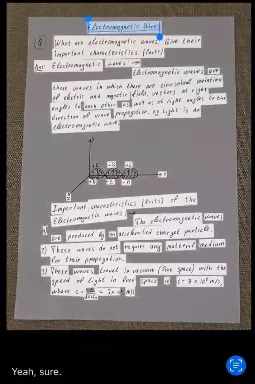 Electromagnetic Wave
Q What are electromagnetic waves. Give their
important characteristics (facts)
Ans: Electromagnetic waves →
Electromagnetic waves are
those waves in which there are sinusoidal variation
of electric and magnetic field vectors at right
angles to each other as well as at right angles to the
direction of wave propagation. eg light is an
electromagnetic wave.
Important characteristics (facts) of the
Electromagnetic waves →
The electromagnetic waves
are produced by an accelerated charged particle.
2) These waves do not require any material medium
for their propagation.
3) These waves travel in vacuum (free space) with the
speed of light in free space is c = 3 × 10⁸ m/s,
where
Yeah, sure.